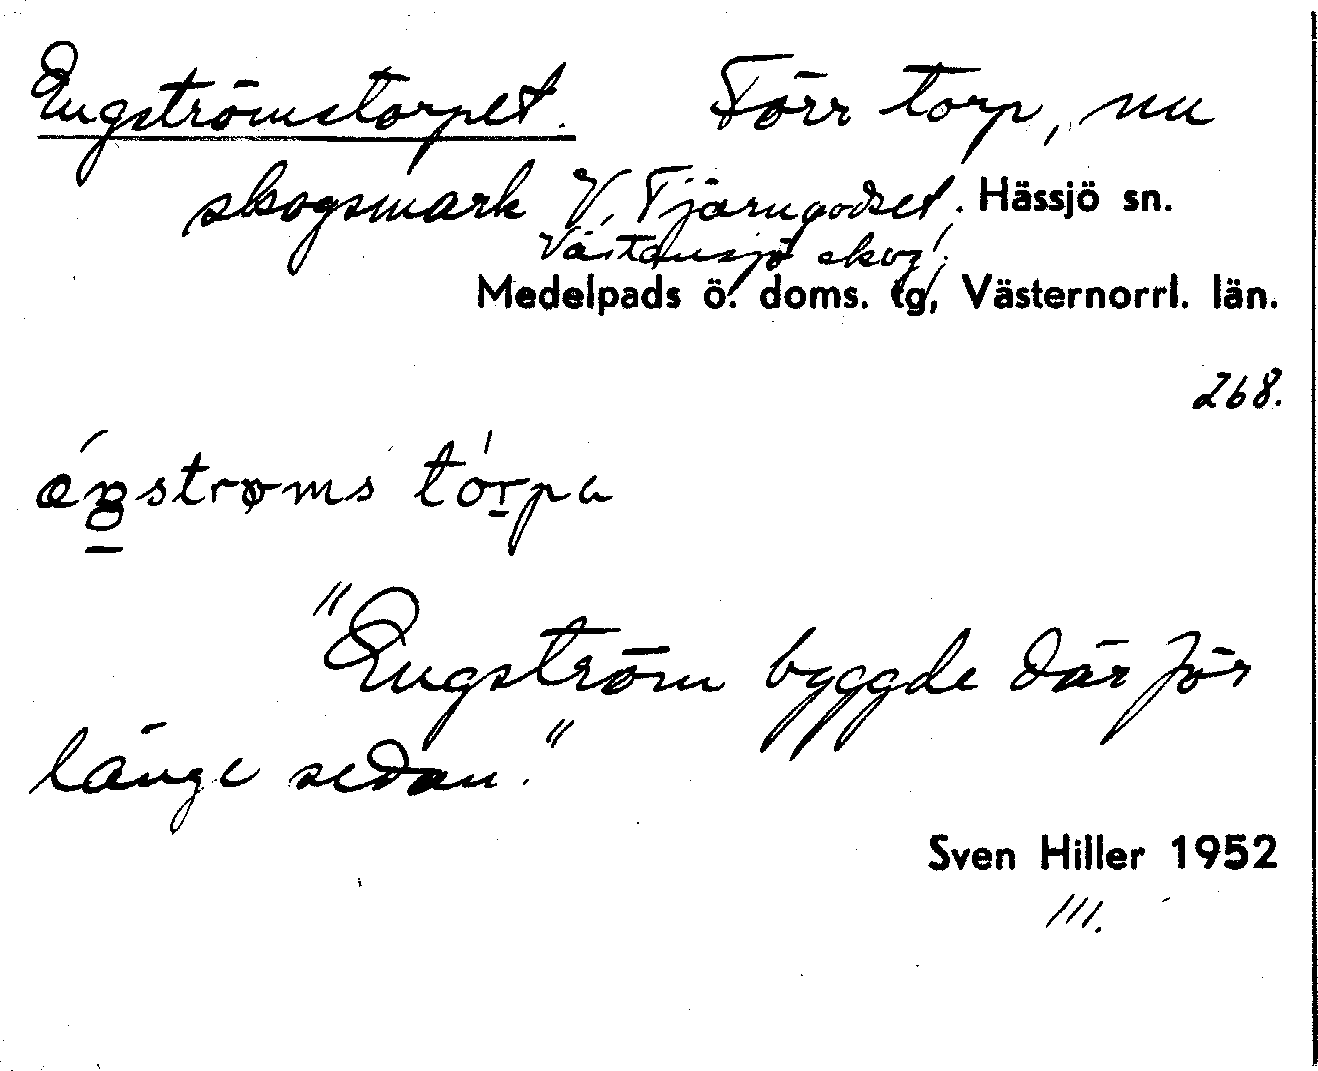 Engströmstorpet. Förr torp, nu
skogsmark V. Tjärngodset. Hässjö sn.
Västansjö skog.
Medelpads ö. doms. tg, Västernorrl. län.
268.
tórpa
"Engström byggde där för
länge sedan."
Sven Hiller 1952
111.